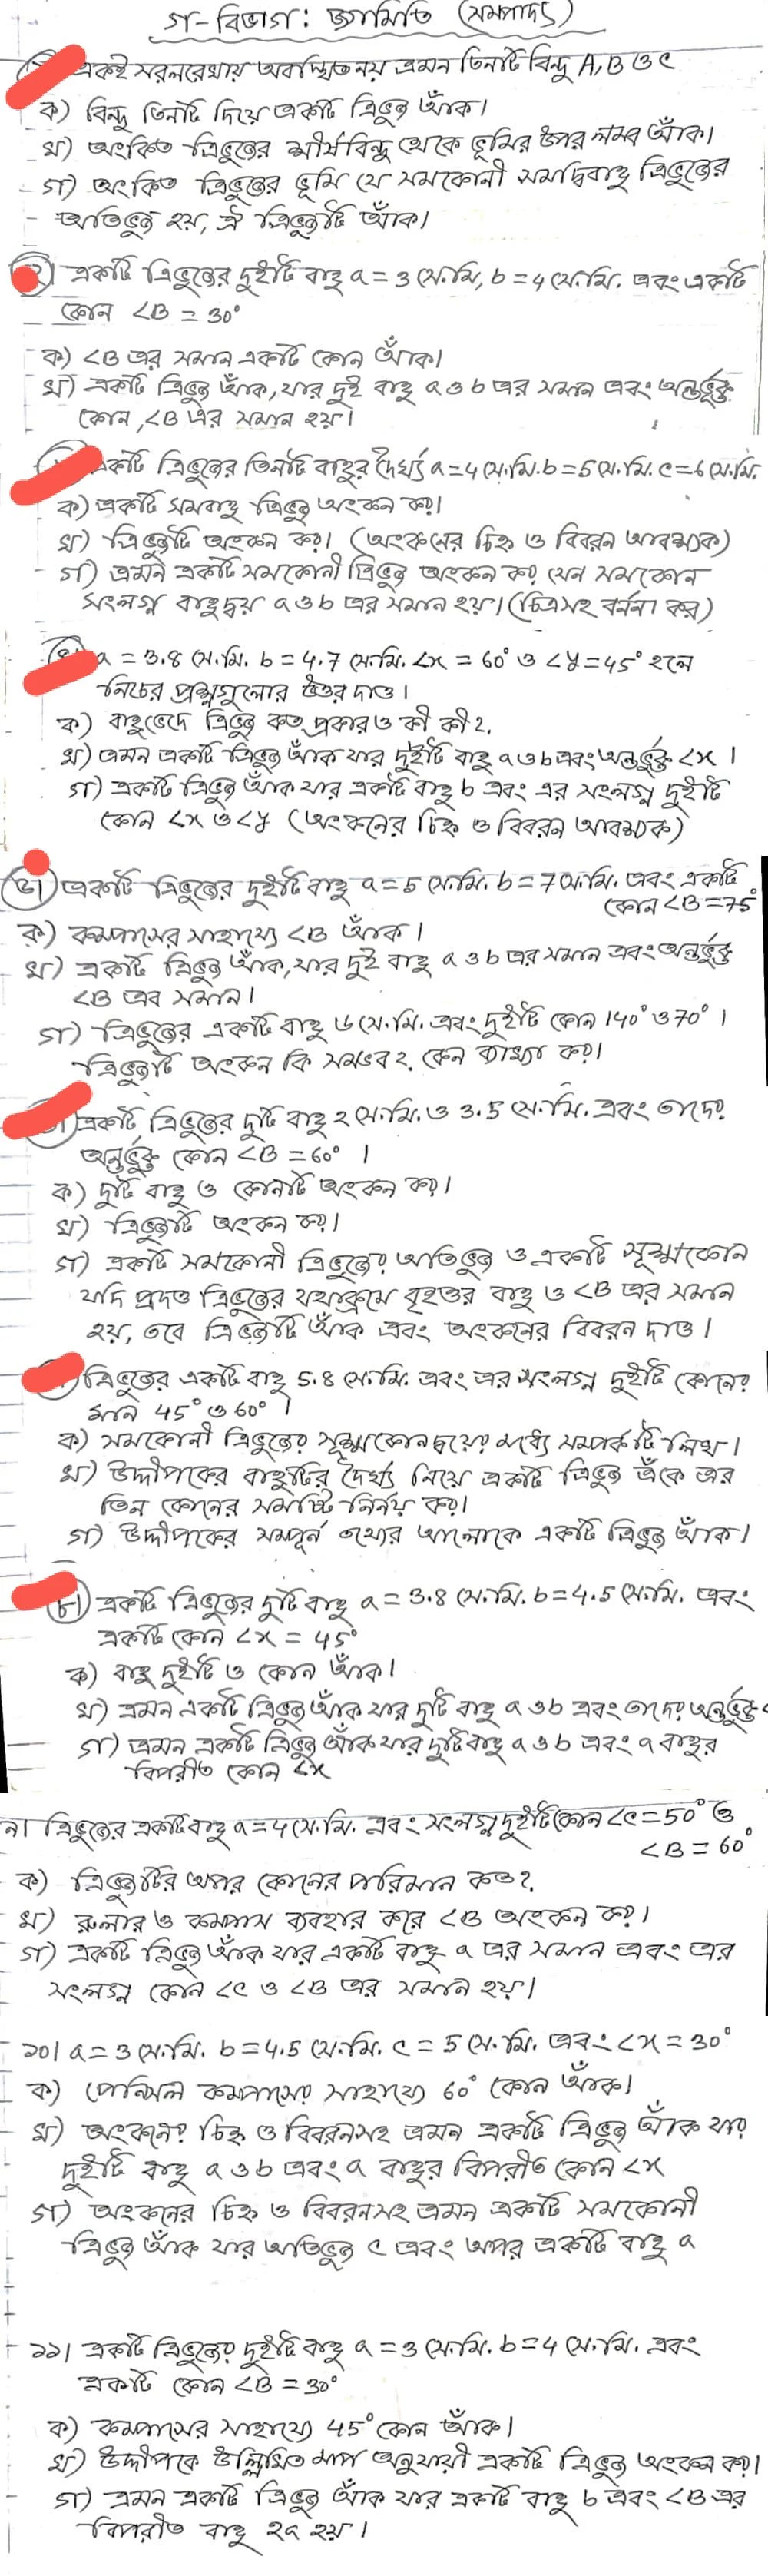 গ-বিভাগ: জ্যামিতি (সম্পাদ্য)
একই সরলরেখায় অবস্থিত নয় এমন তিনটি বিন্দু A, B ও C
ক) বিন্দু তিনটি দিয়ে একটি ত্রিভুজ আঁক।
খ) অংকিত ত্রিভুজের শীর্ষবিন্দু থেকে ভূমির উপর লম্ব আঁক।
গ) অংকিত ত্রিভুজের ভূমি যে সমকোনী সমদ্বিবাহু ত্রিভুজের
অতিভুজ হয়, ঐ ত্রিভুজটি আঁক।
২) একটি ত্রিভুজের দুইটি বাহু a = 3 সে.মি, b = 4 সে.মি. এবং একটি
কোন <B = 30°
ক) <B এর সমান একটি কোন আঁক।
খ) একটি ত্রিভুজ আঁক, যার দুই বাহু a ও b এর সমান এবং অন্তর্ভূক্ত
কোন, <B এর সমান হয়।
একটি ত্রিভুজের তিনটি বাহুর দৈর্ঘ্য a=4 সে.মি. b=5 সে.মি. c=6 সে.মি.
ক) একটি সমবাহু ত্রিভুজ অংকন কর।
খ) ত্রিভুজটি অংকন কর। (অংকনের চিহ্ন ও বিবরন আবশ্যক)
গ) এমন একটি সমকোনী ত্রিভুজ অংকন কর যেন সমকোন
সংলগ্ন বাহুদ্বয় a ও b এর সমান হয়। (চিত্রসহ বর্ননা কর)
a = 3.8 সে.মি. b = 4.7 সে.মি. <x = 60° ও <y = 45° হলে
নিচের প্রশ্নগুলোর উত্তর দাও।
ক) বাহুভেদে ত্রিভুজ কত প্রকার ও কী কী?
খ) এমন একটি ত্রিভুজ আঁক যার দুইটি বাহু a ও b এবং অন্তর্ভুক্ত <x।
গ) একটি ত্রিভুজ আঁক যার একটি বাহু b এবং এর সংলগ্ন দুইটি
কোন <x ও <y (অংকনের চিহ্ন ও বিবরন আবশ্যক)
৫। একটি ত্রিভুজের দুইটি বাহু a = 5 সে.মি. b = 7 সে.মি. এবং একটি
কোন <B = 75°
ক) কম্পাসের সাহায্যে <B আঁক।
খ) একটি ত্রিভুজ আঁক, যার দুই বাহু a ও b এর সমান এবং অন্তর্ভুক্ত
<B এর সমান।
গ) ত্রিভুজের একটি বাহু ৬ সে.মি. এবং দুইটি কোন 140° ও 70°।
ত্রিভুজটি অংকন কি সম্ভব? কেন ব্যাখ্যা কর।
একটি ত্রিভুজের দুটি বাহু 2 সে.মি. ও 3.5 সে.মি. এবং তাদের
অন্তর্ভুক্ত কোন <B = 60°।
ক) দুটি বাহু ও কোনটি অংকন কর।
খ) ত্রিভুজটি অংকন কর।
গ) একটি সমকোনী ত্রিভুজের অতিভুজ ও একটি সূক্ষ্মকোন
যদি প্রদত্ত ত্রিভুজের যথাক্রমে বৃহত্তর বাহু ও <B এর সমান
হয়, তবে ত্রিভুজটি আঁক এবং অংকনের বিবরন দাও।
ত্রিভুজের একটি বাহু 5.8 সে.মি. এবং এর সংলগ্ন দুইটি কোনের
মান 45° ও 60°।
ক) সমকোনী ত্রিভুজের সূক্ষ্মকোনদ্বয়ের মধ্যে সম্পর্কটি লিখ।
খ) উদ্দীপকের বাহুটির দৈর্ঘ্য নিয়ে একটি ত্রিভুজ এঁকে এর
তিন কোনের সমষ্টি নির্নয় কর।
গ) উদ্দীপকের সম্পূর্ন তথ্যের আলোকে একটি ত্রিভুজ আঁক।
৮। একটি ত্রিভুজের দুটি বাহু a = 3.8 সে.মি. b = 4.5 সে.মি. এবং
একটি কোন <x = 45°
ক) বাহু দুইটি ও কোন আঁক।
খ) এমন একটি ত্রিভুজ আঁক যার দুটি বাহু a ও b এবং তাদের অন্তর্ভুক্ত <
গ) এমন একটি ত্রিভুজ আঁক যার দুটি বাহু a ও b এবং a বাহুর
বিপরীত কোন <x
৯। ত্রিভুজের একটি বাহু a = 4 সে.মি. এবং সংলগ্ন দুইটি কোন <C = 50° ও
<B = 60°
ক) ত্রিভুজটির অপর কোনের পরিমান কত?
খ) রুলার ও কম্পাস ব্যবহার করে <B অংকন কর।
গ) একটি ত্রিভুজ আঁক যার একটি বাহু a এর সমান এবং এর
সংলগ্ন কোন <C ও <B এর সমান হয়।
১০। a = 3 সে.মি. b = 4.5 সে.মি. c = 5 সে.মি. এবং <x = 30°
ক) পেনসিল কম্পাসের সাহায্যে 60° কোন আঁক।
খ) অংকনের চিহ্ন ও বিবরনসহ এমন একটি ত্রিভুজ আঁক যার
দুইটি বাহু a ও b এবং a বাহুর বিপরীত কোন <x
গ) অংকনের চিহ্ন ও বিবরনসহ এমন একটি সমকোনী
ত্রিভুজ আঁক যার অতিভুজ c এবং অপর একটি বাহু a
১১। একটি ত্রিভুজের দুইটি বাহু a = 3 সে.মি. b = 4 সে.মি. এবং
একটি কোন <B = 30°
ক) কম্পাসের সাহায্যে 45° কোন আঁক।
খ) উদ্দীপকে উল্লিখিত মাপ অনুযায়ী একটি ত্রিভুজ অংকন কর।
গ) এমন একটি ত্রিভুজ আঁক যার একটি বাহু b এবং <B এর
বিপরীত বাহু 2a হয়।